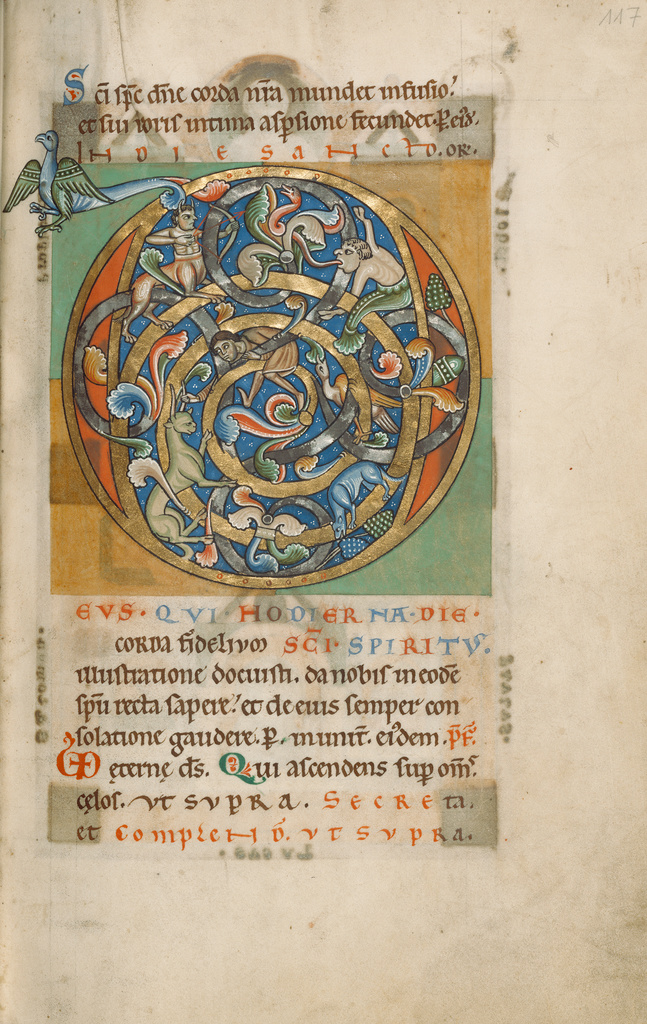 117
Sci spc dne corda nra mundet infusio.
et sui roris intima aspsione fecundet. P. eiusd.
IN DIE SANCTO. OR.
D
EVS· QVI HODIERNA·DIE·
corda fideliu SCI· SPIRITV.
illustratione docuisti. da nobis in eode
spu recta sapere. et de eius semper con
solatione gaudere. P. in unit. eidem. PF.
eterne ds. Qui ascendens sup oms.
celos. VT SVPRA. SECRETA.
et COMPLEND. VT SVPRA.